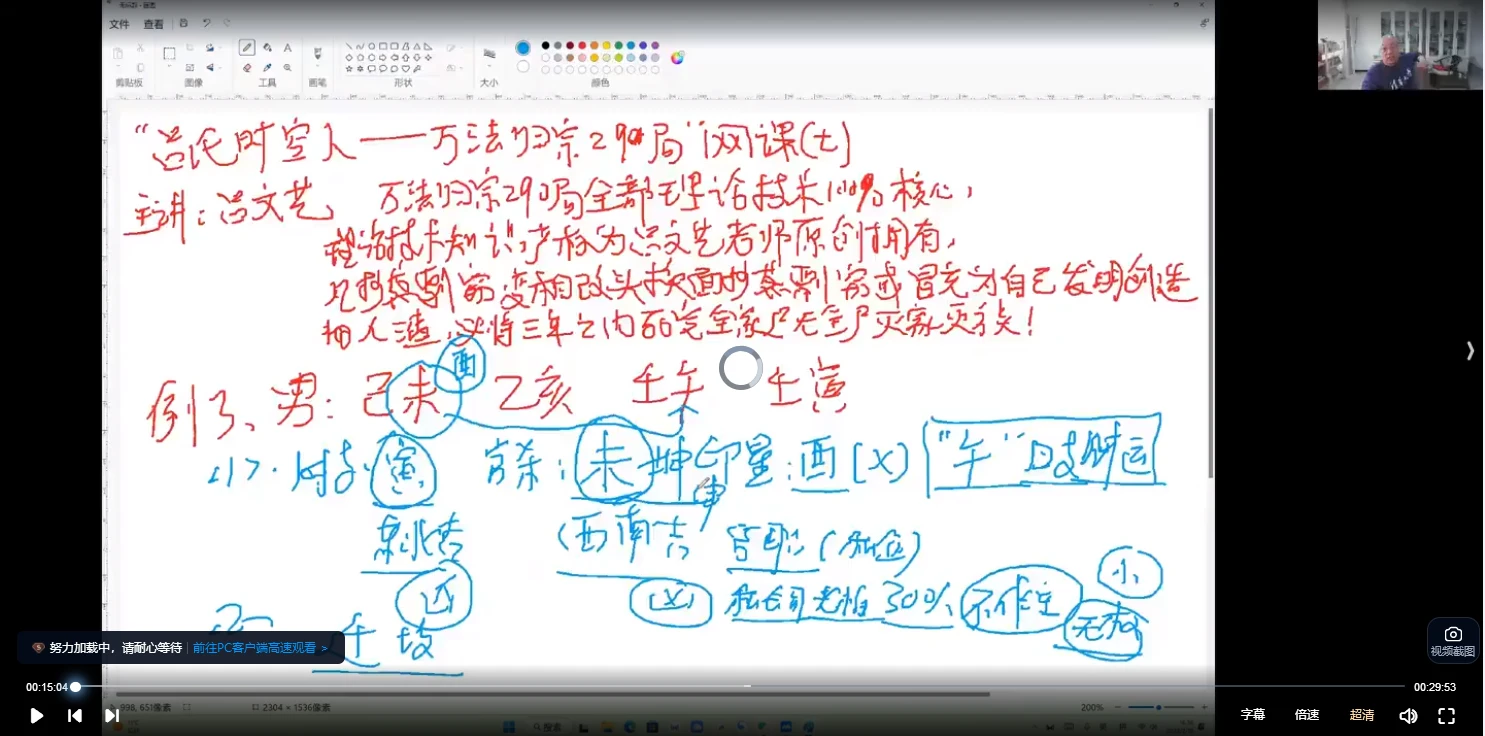 文件 查看
剪贴板 图像 工具 画笔 形状 大小 颜色
“吕氏时空人——万法归宗290局”网课(七)
主讲：吕文艺 万法归宗290局全部理论技术100%核心，
理论技术知识产权为吕文艺老师原创拥有，
凡抄袭剽窃变相改头换面抄袭剽窃或冒充为自己发明创造
三年之内
酉
例3、男：己未 乙亥 壬午 壬寅
(1)、时支：寅 官杀：未坤 印星：酉(X) “午”日支财运
申
东北吉 (西南吉 管职(
近 (义) 30% 不作主
小
午 无权
努力加载中，请耐心等待 前往PC客户端高速观看 >
视频截图
00:15:04 00:29:53
998, 651像素 2304 × 1536像素 200%
字幕 倍速 超清